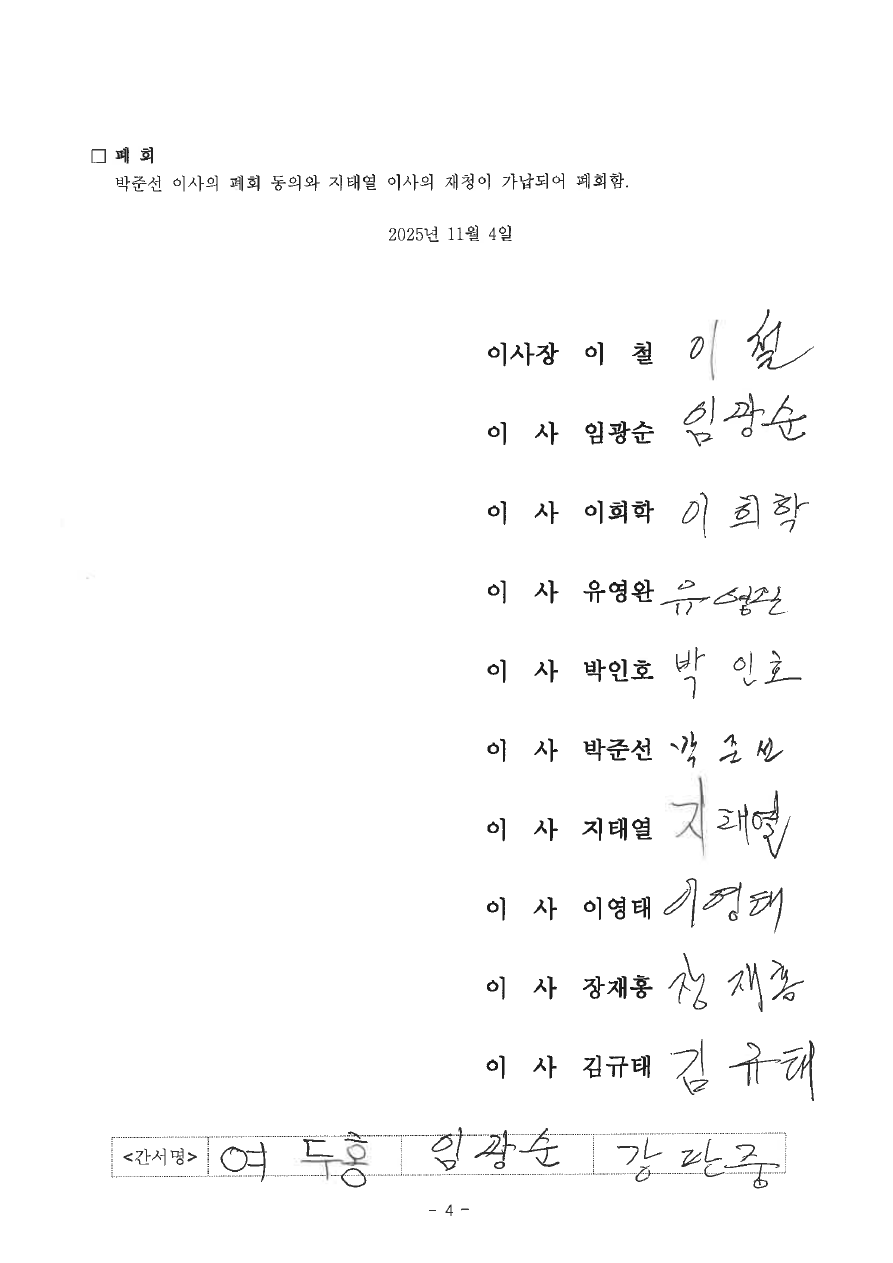 □ 폐 회
박준선 이사의 폐회 동의와 지태열 이사의 재청이 가납되어 폐회함.
2025년 11월 4일
이사장 이 철 이 철
이 사 임광순 임광순
이 사 이희학 이희학
이 사 유영완 유영완
이 사 박인호 박인호
이 사 박준선 박준선
이 사 지태열 지태열
이 사 이영태 이영태
이 사 장재홍 장재홍
이 사 김규태 김규태
<간서명> 여두홍 임광순 강판중
- 4 -